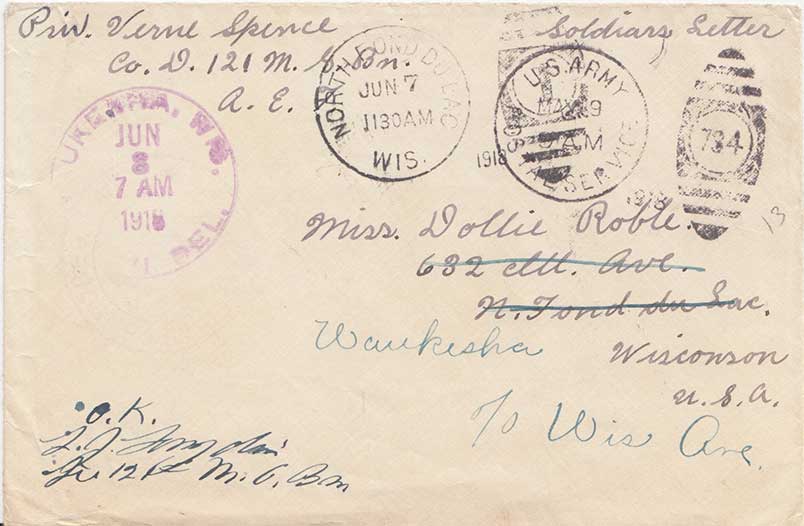 Priv. Verne Spence
Co. D. 121 M. G. Bn.
A. E. F.
Soldiars Letter
NORTH FOND DU LAC
JUN 7
1130AM
WIS.
1918
U.S. ARMY
MAY 19
AM
POSTAL SERVICE
1918
734
13
WIS.
JUN
8
7 AM
1918
DEL.
Miss. Dollie Roble.
632 Ave.
N. Fond du Lac.
Waukesha
Wisconson
U.S.A.
Wis Ave.
O.K.
121st M. G. Bn